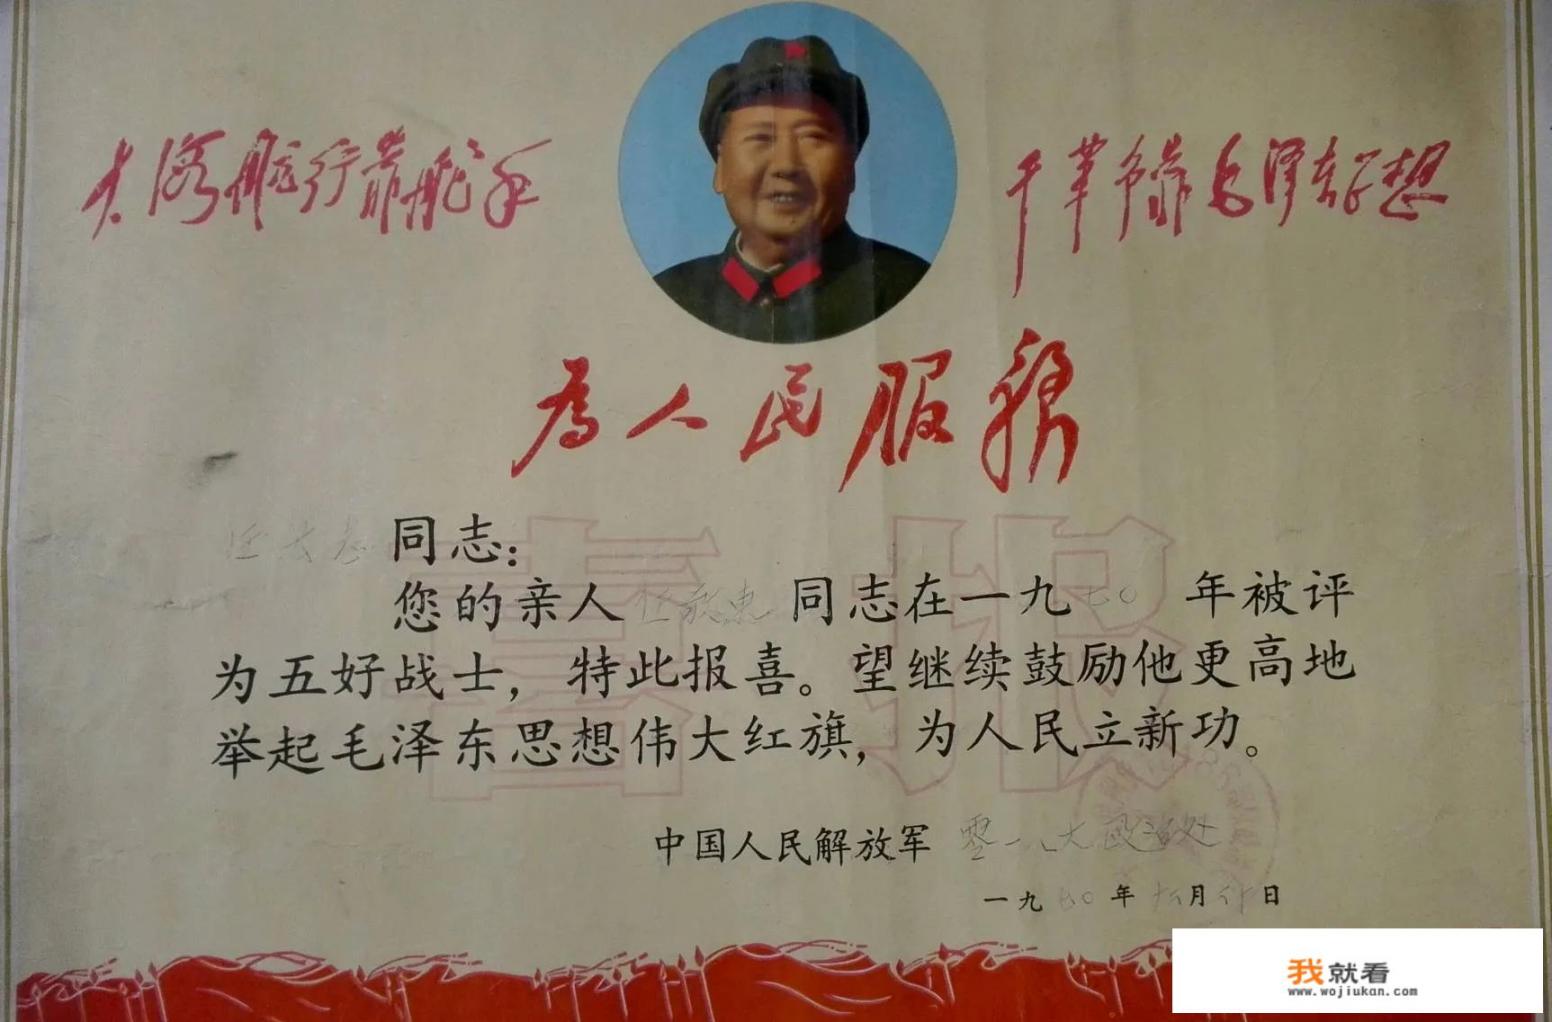 大海航行靠舵手
干革命靠毛泽东思想
为人民服务
喜报
同志：
您的亲人 同志在一九七〇年被评
为五好战士，特此报喜。望继续鼓励他更高地
举起毛泽东思想伟大红旗，为人民立新功。
中国人民解放军 政治处
一九七〇年 月 日
我就看
www.wojiukan.com